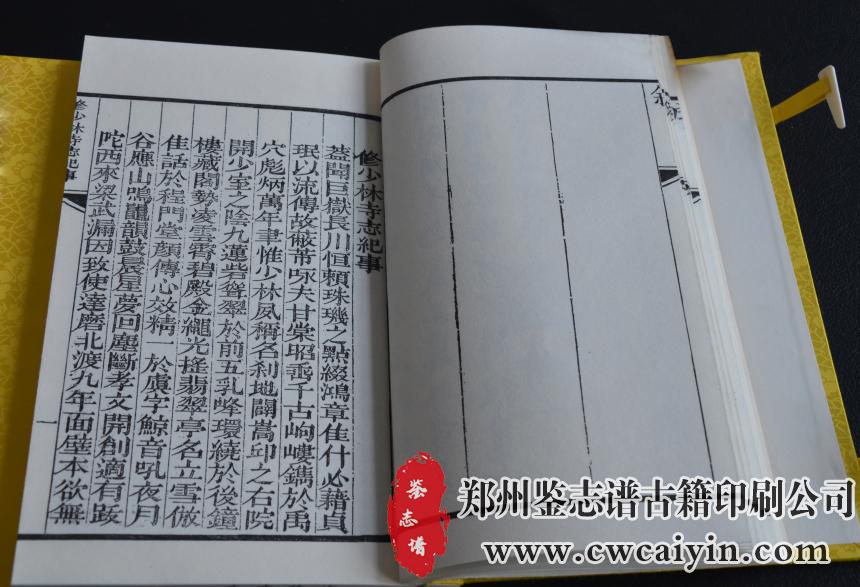 修少林寺志紀事
蓋聞巨嶽長川恒賴珠璣之點綴鴻章佳什必藉貞
珉以流傳故蔽芾咏夫甘棠昭垂千古岣嶁鐫於禹
穴彪炳萬年粤惟少林夙稱名刹地闢嵩邱之右院
開少室之陰九蓮峇聳翠於前五乳峰環繞於後鐘
樓藏閣勢凌雲霄碧殿金繩光搖翡翠亭名立雪倣
佳話於程門堂顔傳心效精一於虞字鯨音吼夜月
谷應山鳴鼉韻鼓晨星夢回塵斷孝文開創適有跋
陀西來梁武漏因致使達磨北渡九年面壁本欲無
修少林寺志紀事
一
鉴志谱
郑州鉴志谱古籍印刷公司
www.cwcaiyin.com